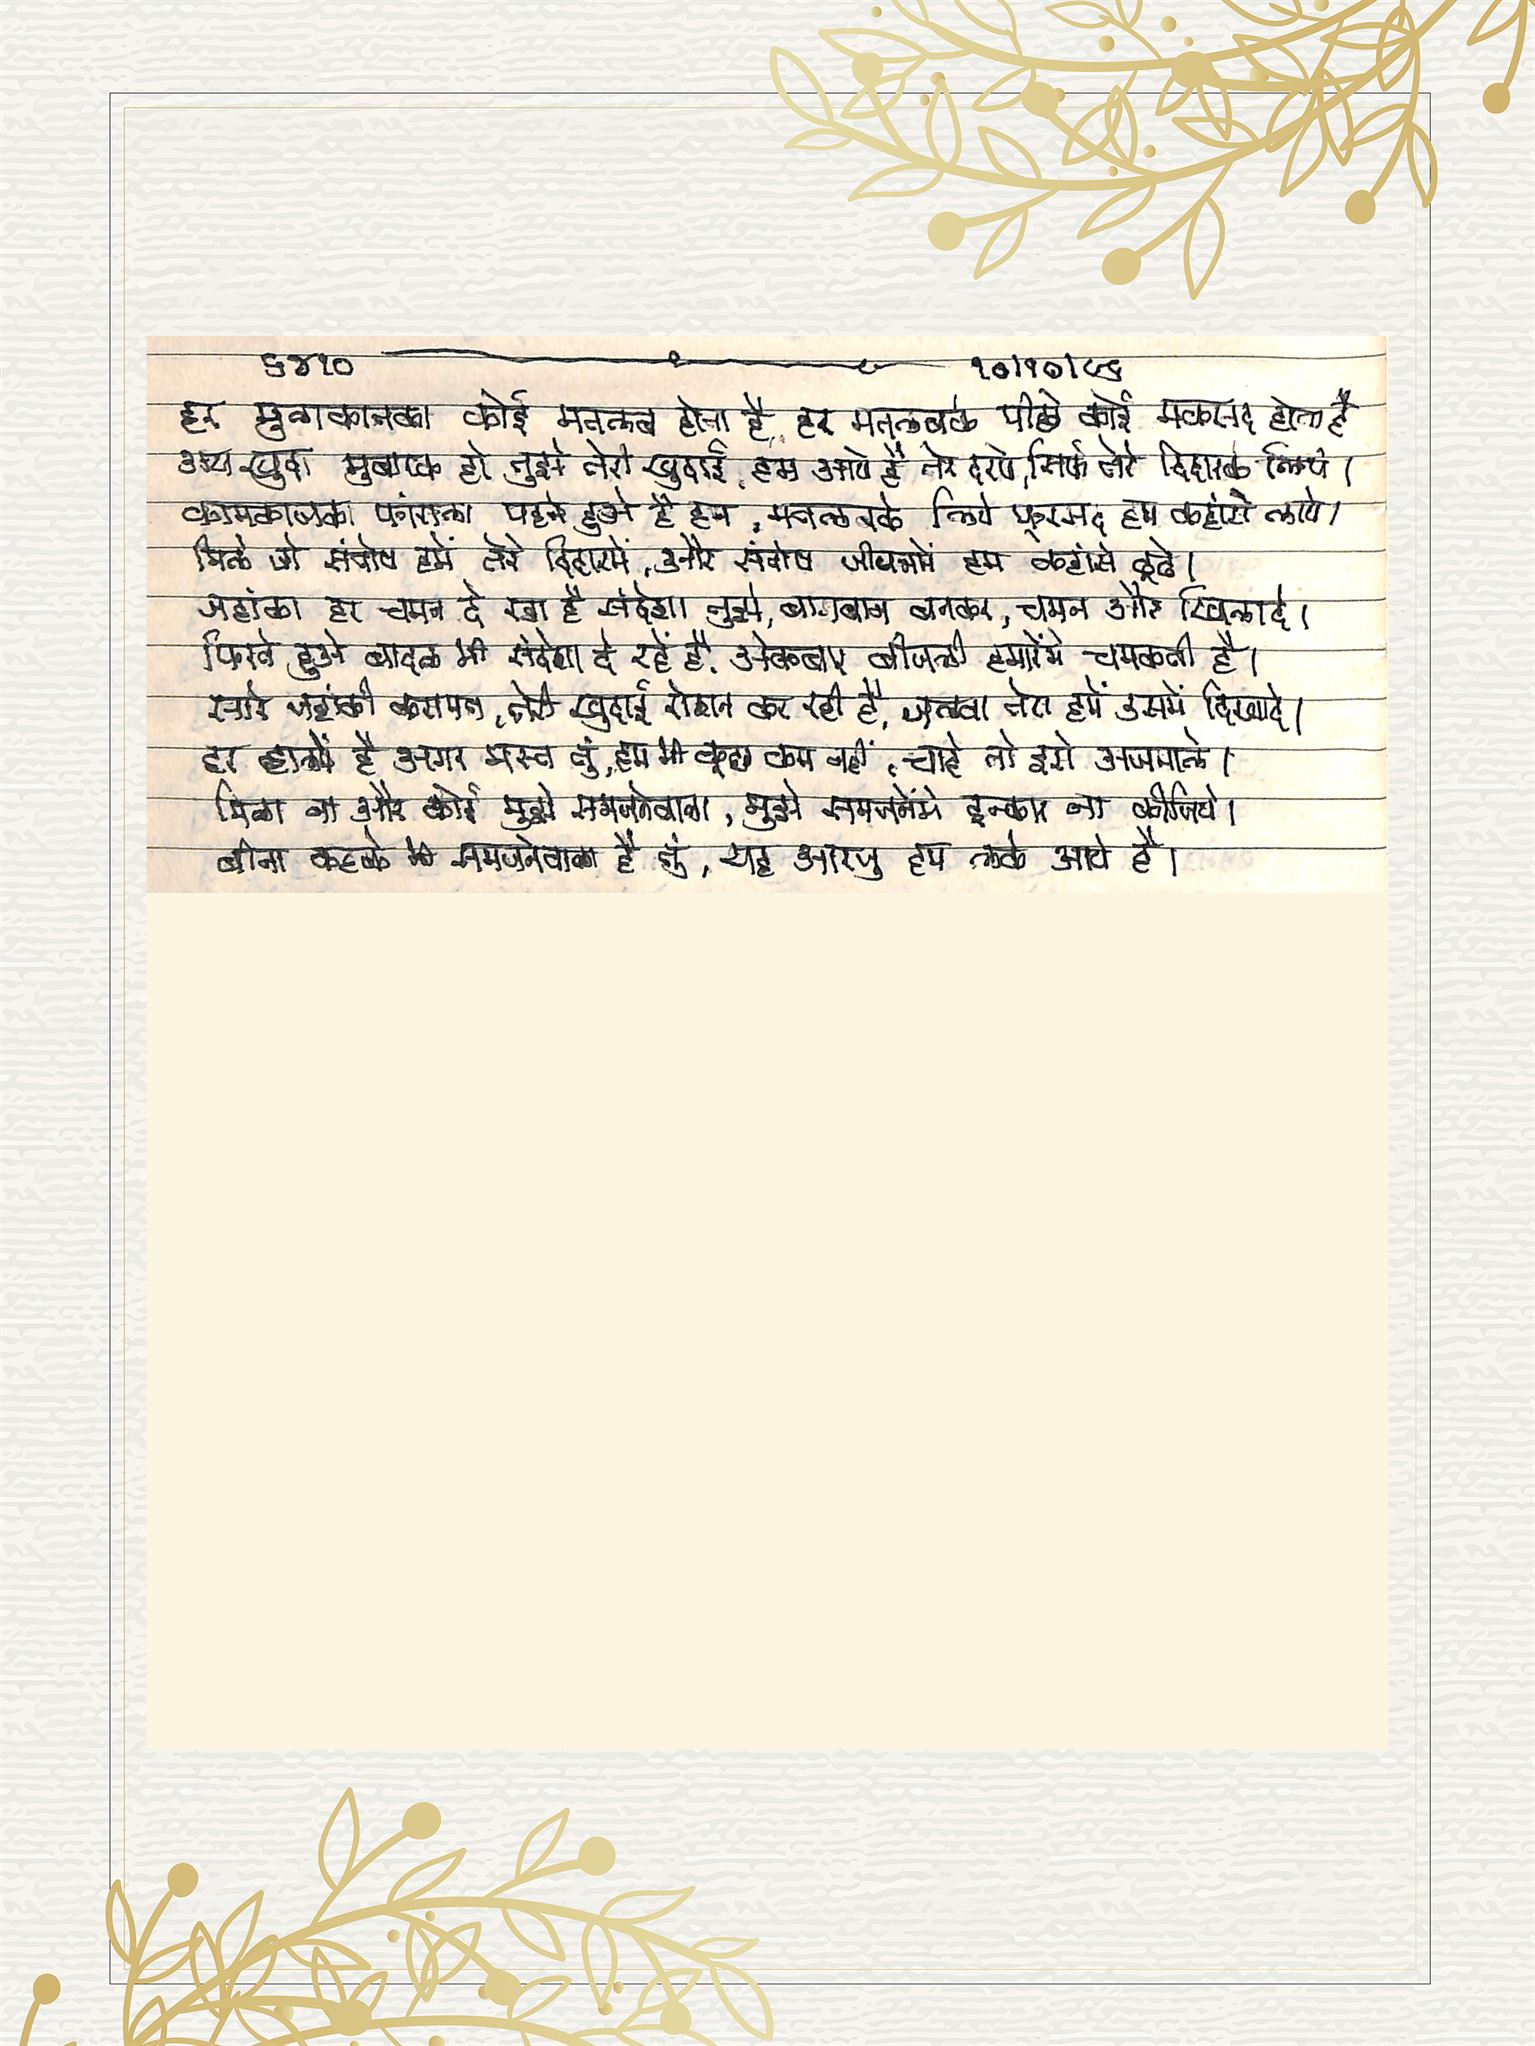 ६४१० १०।१०।८६
हर मुलाकातका कोई मतलब होता है, हर मतलबके पीछे कोई मकसद होता है
अय खुदा मुबारक हो तुझे तेरी खुदाई, हम आये है तेरे दरपे, सिर्फ तेरे दिदारके लिये।
कामकाजका फांसला पहने हुओ है हम, मतलबके लिये फुरसद हम कहांसे लाये।
मिले जो संतोष हमें तेरे दिदारमें, और संतोष जीवनमें हम कहांसे ढूढे।
जहांका हर चमन दे रहा है संदेशा तुझे, बागबान बनकर, चमन और खिलादे।
फिरते हुओ बादल भी संदेशा दे रहें है, ओकबार बीजली हमारेंमे चमकती है।
सारे जहांकी करामत, तेरी खुदाई रोशन कर रही है, जलवा तेरा हमें उसमें दिखादे।
हर हालमें है अगर मस्त तुं, हम भी कुछ कम नहीं, चाहे तो इसे अजमाले।
मिला ना और कोई मुझे समजनेवाला, मुझे समजनेंमे इन्कार ना कीजिये।
बीना कहके भी समजनेवाला है तुं, यह आरजु हम लेके आये है।